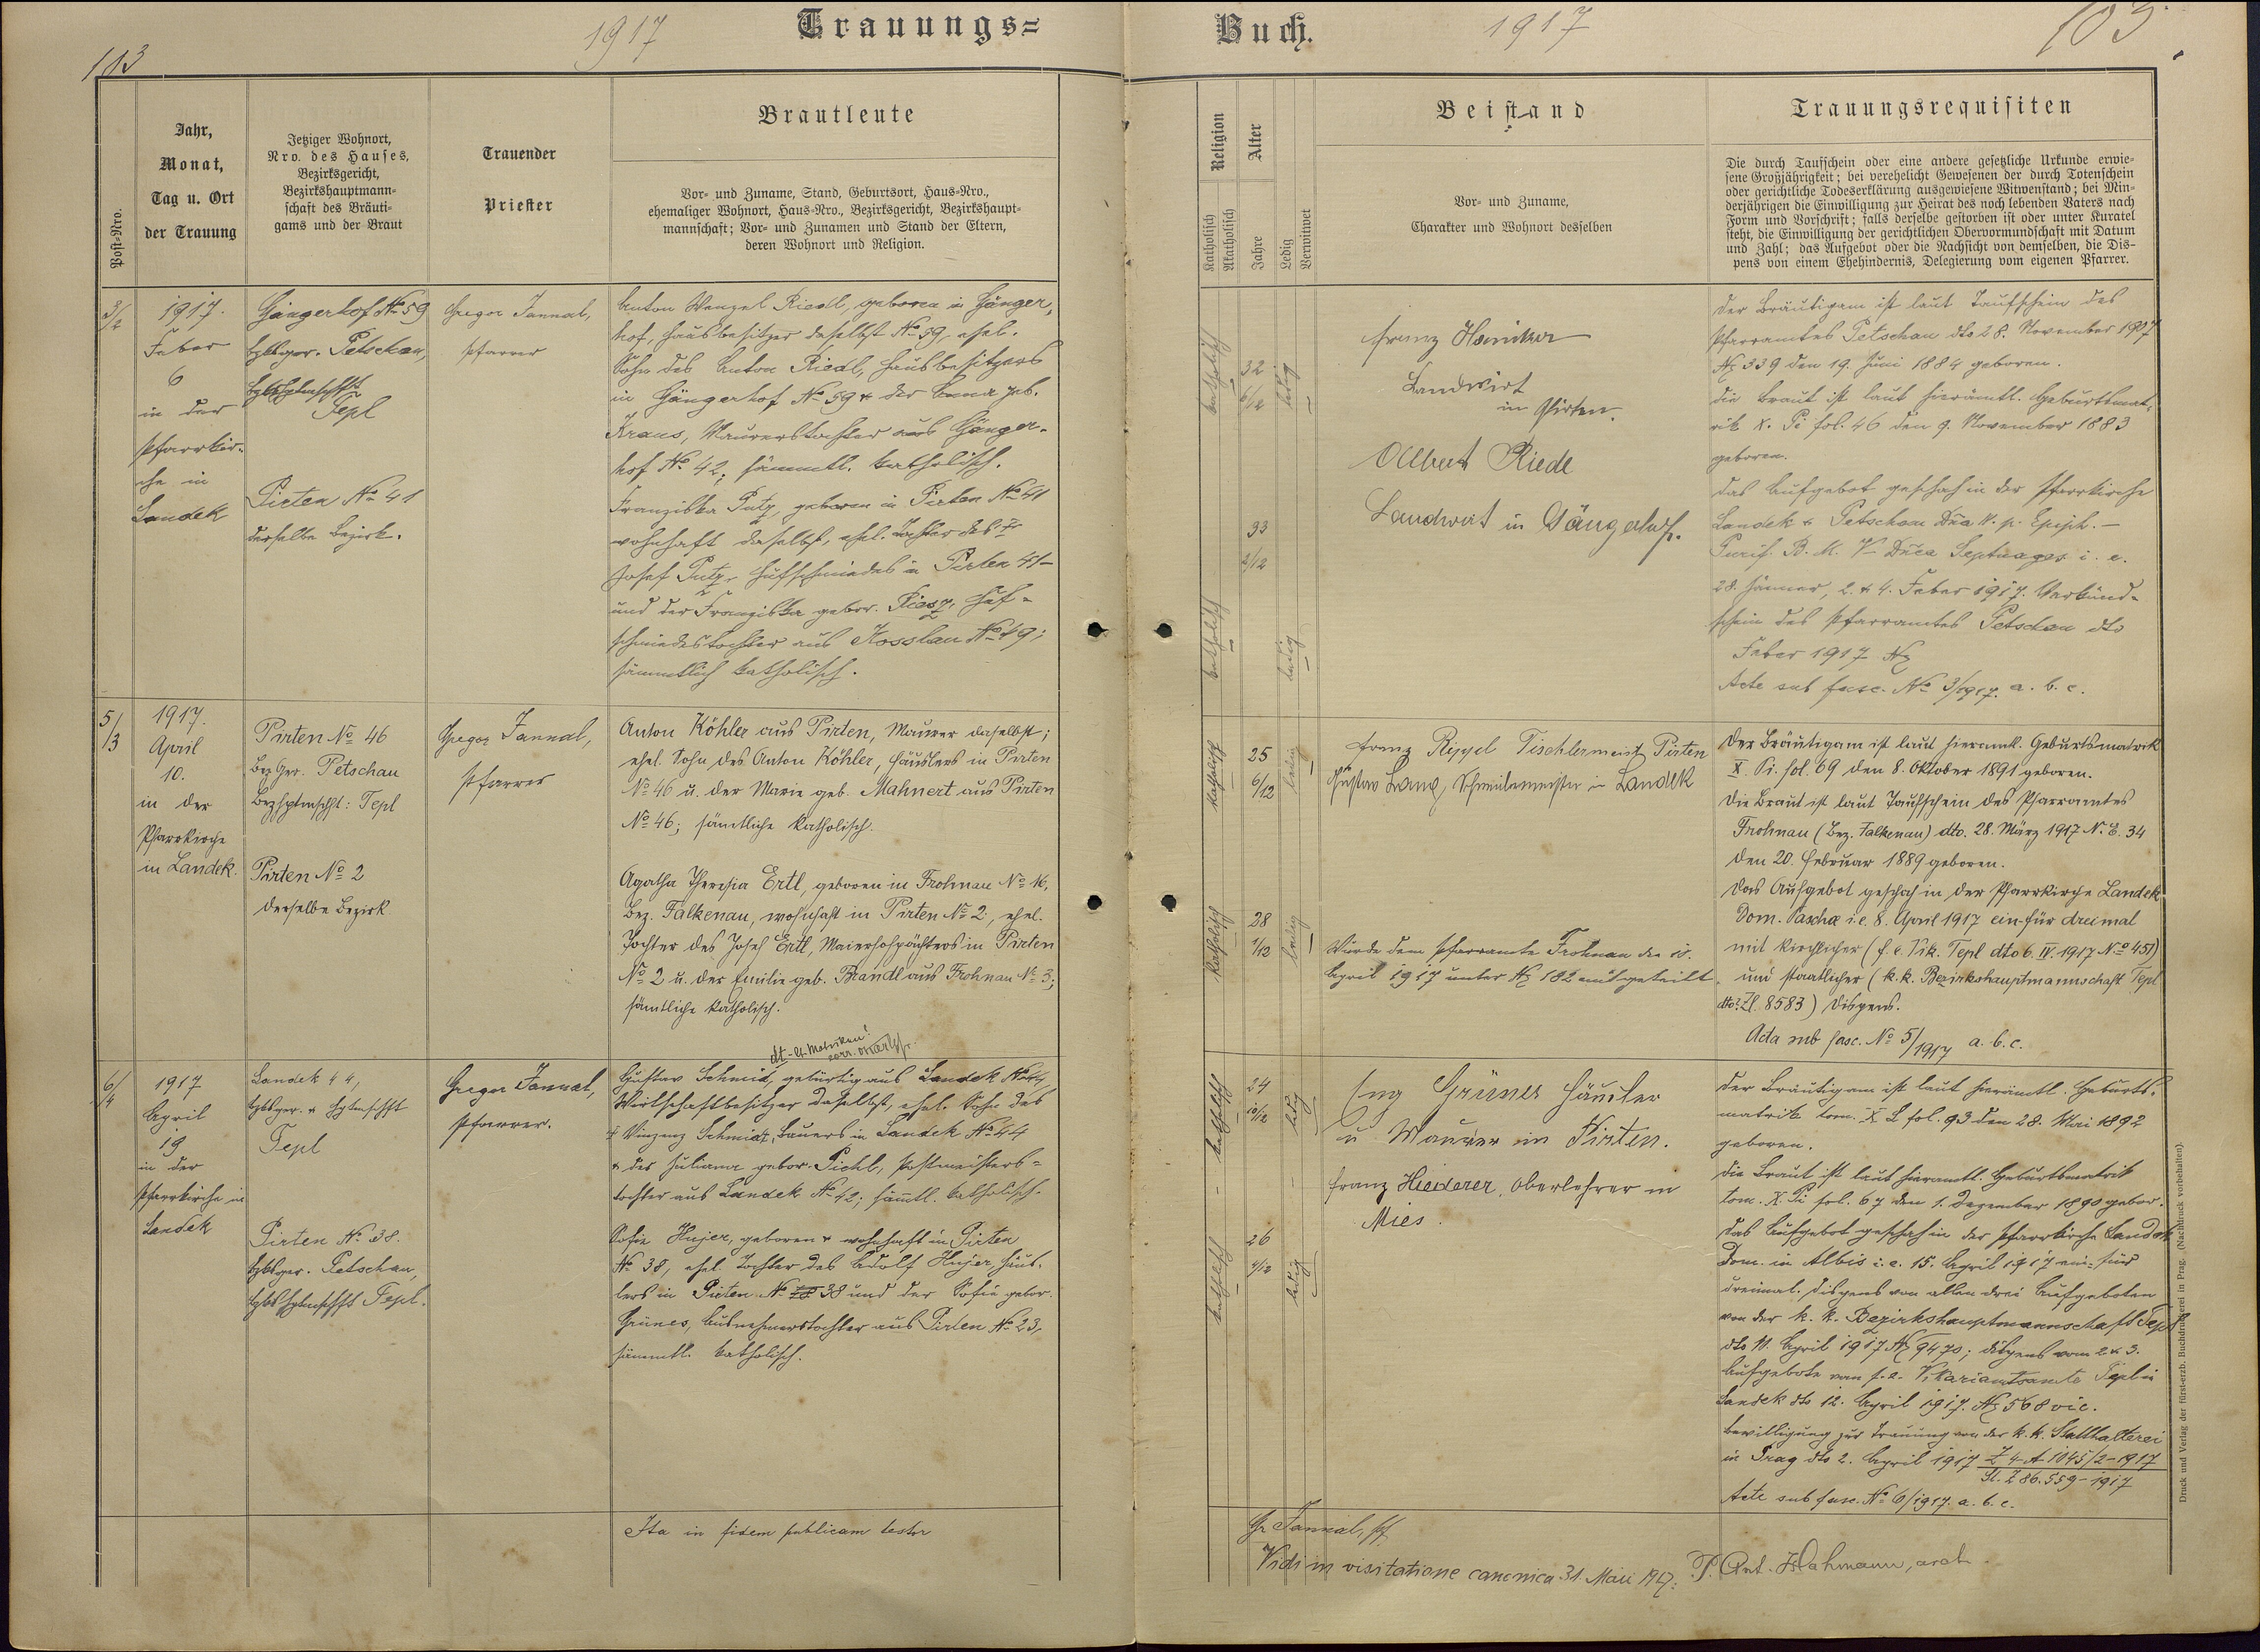 113
1917
Trauungs=
Post-Nro.
Jahr,
Monat,
Tag u. Ort
der Trauung
Jetziger Wohnort,
Nro. des Hauses,
Bezirksgericht,
Bezirkshauptmann-
schaft des Bräuti-
gams und der Braut
Trauender
Priester
Brautleute
Vor- und Zuname, Stand, Geburtsort, Haus-Nro.,
ehemaliger Wohnort, Haus-Nro., Bezirksgericht, Bezirkshaupt-
mannschaft; Vor- und Zunamen und Stand der Eltern,
deren Wohnort und Religion.
3/2
1917.
Feber
6
in der
Pfarrkir-
che in
Landek
Gängerhof No 59
Petschau,
Tepl
Pirten No 41
derselbe Bezirk.
Gregor Jannal,
Pfarrer
Anton Wenzel Riedl, geboren in Gänger-
hof, Hausbesitzer daselbst No 59, ehel.
Sohn des Anton Riedl, Hausbesitzers
in Gängerhof No 59 & der Anna geb.
Kraus, Maurerstochter aus Gänger-
hof No 42; sämmtl. katholisch.
Franziska Putz, geboren in Pirten No 41
wohnhaft daselbst, ehel. Tochter des †
Josef Putz, Hufschmiedes in Pirten 41-
und der Franziska gebor. Riesz, Huf-
schmiedestochter aus Kosslau No 49;
sämmtlich katholisch.
5/3
1917.
April
10.
in der
Pfarrkirche
in Landek.
Pirten No 46
Bez. Ger. Petschau
Bezhptmschft: Tepl
Pirten No 2
derselbe Bezirk
Gregor Jannal,
Pfarrer
Anton Köhler aus Pirten, Maurer daselbst;
ehel. Sohn des Anton Köhler, Häuslers in Pirten
No 46 u. der Marie geb. Mahnert aus Pirten
No 46; sämtliche katholisch.
Agatha Theresia Ertl, geboren in Frohnau No 16,
Bez. Falkenau, wohnhaft in Pirten No 2, ehel.
Tochter des Josef Ertl, Maierhofpächters in Pirten
No 2 u. der Emilie geb. Brandl aus Frohnau No 3;
sämtliche katholisch.
6/4
1917
April
19
in der
Pfarrkirche in
Landek
Landek 44,
Tepl
Pirten No 38.
Petschau,
Tepl.
Gregor Jannal,
Pfarrer.
dt - lt. Matriken
corr.
Gustav Schmidt, gebürtig aus Landek No 44,
Wirtschaftbesitzer daselbst, ehel. Sohn des
† Vinzenz Schmidt, Bauers in Landek No 44
& der Juliana gebor. Pichl, Postmeisters-
tochter aus Landek No 12; sämtl. katholisch.
Sofie Hujer, geboren & wohnhaft in Pirten
No 38, ehel. Tochter des Adolf Hujer, Häus-
lers in Pirten No 38 und der Sofie gebor.
Grünes, Ausnehmerstochter aus Pirten No 23,
sämmtl. katholisch.
Ita in fidem publicam testor
Buch.
1917
103
Religion
Katholisch
Akatholisch
Alter
Jahre
Ledig
Verwitwet
Beistand
Vor- und Zuname,
Charakter und Wohnort desselben
Trauungsrequisiten
Die durch Taufschein oder eine andere gesetzliche Urkunde erwie-
sene Großjährigkeit; bei verehelicht Gewesenen der durch Totenschein
oder gerichtliche Todeserklärung ausgewiesene Witwenstand; bei Min-
derjährigen die Einwilligung zur Heirat des noch lebenden Vaters nach
Form und Vorschrift; falls derselbe gestorben ist oder unter Kuratel
steht, die Einwilligung der gerichtlichen Obervormundschaft mit Datum
und Zahl; das Aufgebot oder die Nachsicht von demselben, die Dis-
pens von einem Ehehindernis, Delegierung vom eigenen Pfarrer.
katholisch
32
ledig
Franz
Landwirt
in Pirten.
Albert Riedl
Landwirt in Gängerhof.
katholisch
33
2/12
ledig
Der Bräutigam ist laut Taufschein des
Pfarramtes Petschau dto 28. November 1907
No 339 den 19. Juni 1884 geboren.
Die Braut ist laut hierämtl. Geburtsmat-
rik X. Pi fol. 46 den 9. November 1883
geboren.
Das Aufgebot geschah in der Pfarrkirche
Landek & Petschau Dnca IV. p. Epiph. -
Purif. B. M. V- Dnca Septuages. i. e.
28. Jänner, 2. & 4. Feber 1917. Verkünd-
schein des Pfarramtes Petschau dto
Feber 1917 No
Acte sub fasc. No 3/1917. a. b. c.
katholisch
25
6/12
ledig
Franz Rippel Tischlermeist. Pirten
Gustav Lang, Schmiedemeister in Landek
katholisch
28
1/12
ledig
Wurde dem Pfarramte Frohnau den
April 1917 unter No 182 mitgeteilt.
Der Bräutigam ist laut hieramtl. Geburtsmatrik
X. Pi. fol. 69 den 8. Oktober 1891 geboren.
Die Braut ist laut Taufschein des Pfarramtes
Frohnau (Bez. Falkenau) dto. 28. März 1917 N. E. 34
den 20. Februar 1889 geboren.
Das Aufgebot geschah in der Pfarrkirche Landek
Dom. Paschæ i. e. 8. April 1917 ein-für dreimal
mit kirchlicher (f. e. Vik. Tepl dto 6. IV. 1917 No 451)
und staatlicher (k. k. Bezirkshauptmannschaft Tepl
dto? Zl. 8583) Dispens.
Acta sub fasc. No 5/1917 a. b. c.
katholisch
24
10/12
ledig
Eng Grünes Häusler
u Maurer in Pirten.
Franz Hiederer, Oberlehrer in
Mies.
katholisch
26
4/12
ledig
Der Bräutigam ist laut hierämtl. Geburts-
matrik tom. X L fol. 93 den 28. Mai 1892
geboren.
Die Braut ist laut hieramtl. Geburtsmatrik
tom. X. Pi fol. 67 den 1. Dezember 1890 gebor.
Das Aufgebot geschah in der Pfarrkirche Landek
Dom. in Albis i. e. 15. April 1917 ein-für
dreimal. Dispens von allen drei Aufgeboten
von der k. k. Bezirkshauptmannschaft Tepl
dto 11. April 1917 No 9470; Dispens vom 2. & 3.
Aufgebote vom f. e. Vikariatsamte Tepl in
Landek dto 12. April 1917. No 568 vic.
Bewilligung zur Trauung von der k. k. Statthalterei
in Prag dto 2. April 1917 Z 4-A 1045/2-1917
St. Z 86.559-1917
Acte sub fasc. No 6/1917. a. b. c.
Gr Jannal, Pf.
Vidi in visitatione canonica 31. Maii 1917: P. Ant. Wahmann, arch.
Druck und Verlag der fürst-erzb. Buchdruckerei in Prag. (Nachdruck vorbehalten).